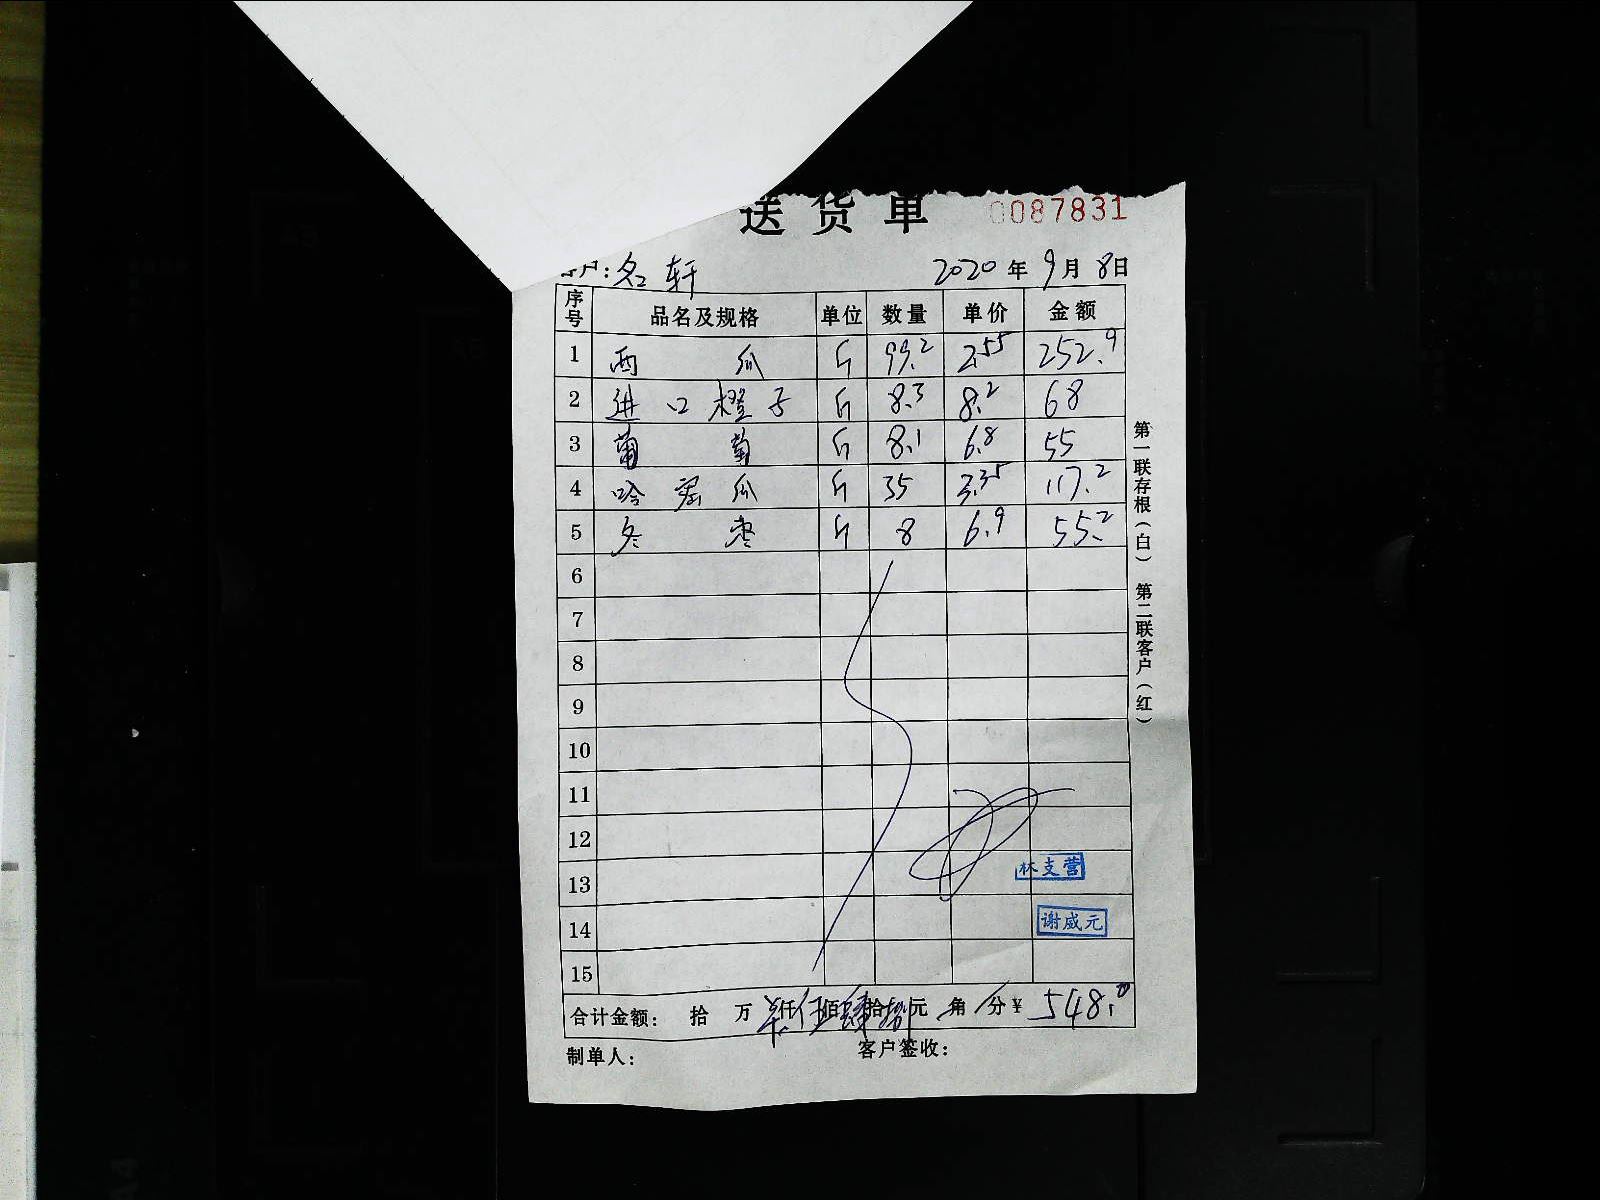 送货单 0087831
客户：名轩 2020年9月8日
序号 品名及规格 单位 数量 单价 金额
1 西瓜 斤 99.2 2.55 252.9
2 进口橙子 斤 8.3 8.2 68
3 葡萄 斤 8.1 6.8 55
4 哈密瓜 斤 35 3.35 117.2
5 冬枣 斤 8 6.9 55.2
6
7
8
9
10
11
12
13 林支营
14 谢威元
15
合计金额： 拾 万 仟伍佰肆拾捌元 角 分￥ 548.0
制单人： 客户签收：
第一联存根（白） 第二联客户（红）